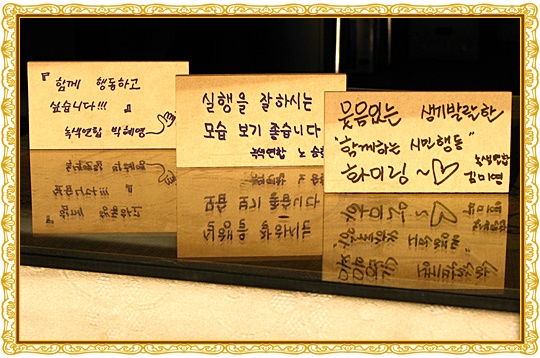 『함께 행동하고
싶습니다!!! 』
녹색연합 박혜영
실행을 잘하시는
모습 보기 좋습니다
녹색연합 노
웃음있는 생기발락한
"함께하는 시민행동"
화이링~♡ 녹색연합
김미영